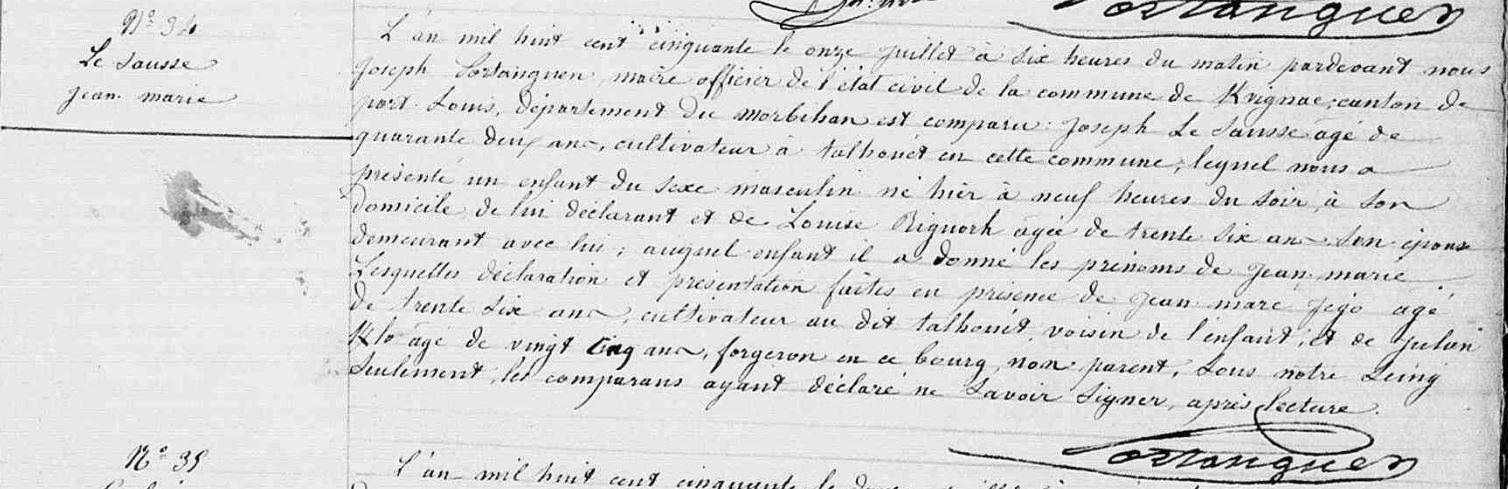 Portanguen
N° 34
Le Sausse
jean marie
L'an mil huit cent cinquante le onze juillet à six heures du matin pardevant nous
joseph Portanguen, maire officier de l'état civil de la commune de Krignac, canton de
port-Louis, département du morbihan est comparu: joseph Le Sausse âgé de
quarante deux ans, cultivateur à talhouët en cette commune, lequel nous a
présenté un enfant du sexe masculin né hier à neuf heures du soir, à son
domicile, de lui déclarant et de Louise Riguorh âgée de trente six ans son épouse
demeurant avec lui; auquel enfant il a donné les prénoms de jean marie
Lesquelles déclaration et présentation faites en présence de jean marc jégo agé
de trente six ans, cultivateur au dit talhouët, voisin de l'enfant, et de julien
Klo âgé de vingt cinq ans, forgeron en ce bourg, non parent, sous notre seing
seulement, les comparans ayant déclaré ne savoir signer, après lecture.
Portanguen
N° 35
L'an mil huit cent cinquante le